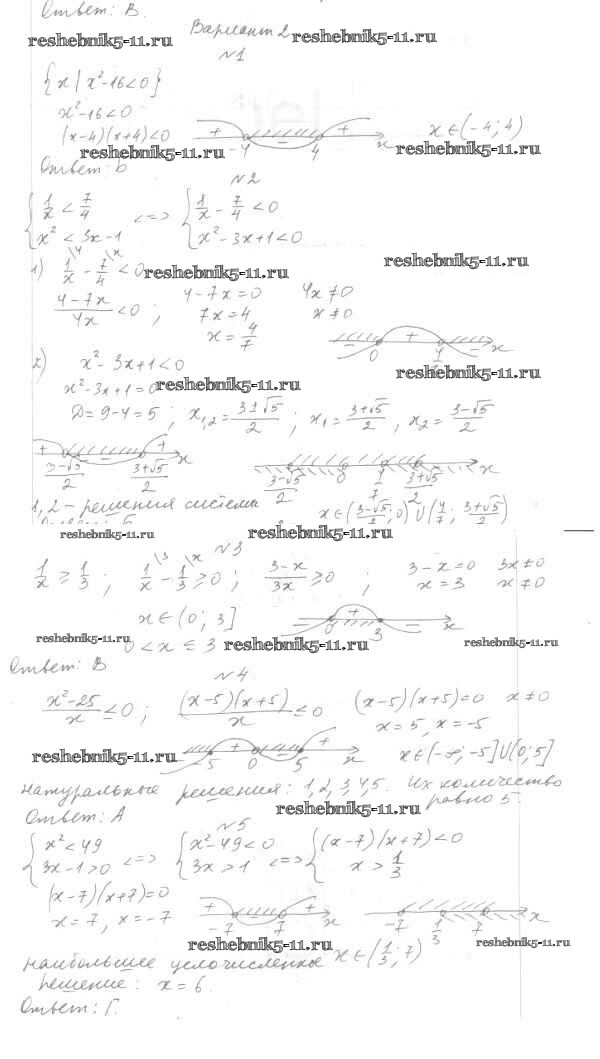 Ответ: В.
reshebnik5-11.ru Вариант 2 reshebnik5-11.ru
№1
{x | x²-16<0}
x²-16<0
(x-4)(x+4)<0 + - + -4 4 x x∈(-4; 4)
reshebnik5-11.ru reshebnik5-11.ru
Ответ: b
№2
{ 1/x < 7/4 <=> { 1/x - 7/4 < 0
x² < 3x-1 x² - 3x+1<0
reshebnik5-11.ru
1) 1/x - 7/4 < 0 reshebnik5-11.ru
(4-7x)/4x < 0 ; 4-7x=0 4x≠0
7x=4 x≠0
x = 4/7 - + - 0 x
2) x² - 3x+1<0 reshebnik5-11.ru
x² - 3x+1=0 reshebnik5-11.ru
D=9-4=5 ; x₁,₂ = (3±√5)/2 ; x₁ = (3+√5)/2 , x₂ = (3-√5)/2
+ - + x
(3-√5)/2 (3+√5)/2 (3-√5)/2 0 (3+√5)/2 x
1,2 - решения системы x∈((3-√5)/2; 0)∪(4/7; (3+√5)/2)
reshebnik5-11.ru reshebnik5-11.ru
№3
1/x ≥ 1/3 ; 1/x - 1/3 ≥ 0 ; (3-x)/3x ≥ 0 ; 3-x=0 3x≠0
x=3 x≠0
x∈(0; 3] - + - 0 3 x
reshebnik5-11.ru 0 < x ≤ 3 reshebnik5-11.ru reshebnik5-11.ru
Ответ: В
№4
(x²-25)/x ≤ 0 ; (x-5)(x+5)/x ≤ 0 (x-5)(x+5)=0 x≠0
x=5, x=-5
reshebnik5-11.ru - + - + -5 0 5 x x∈(-∞; -5]∪(0; 5]
натуральные решения: 1,2,3,4,5. Их количество
reshebnik5-11.ru равно 5.
Ответ: А
№5
{ x²<49 <=> { x²-49<0 <=> { (x-7)(x+7)<0
3x-1>0 3x>1 x > 1/3
(x-7)(x+7)=0
x=7, x=-7 + - + -7 7 x -7 1/3 7 x
reshebnik5-11.ru reshebnik5-11.ru
наибольшее целочисленное x∈(1/3; 7)
решение: x=6.
Ответ: Г.